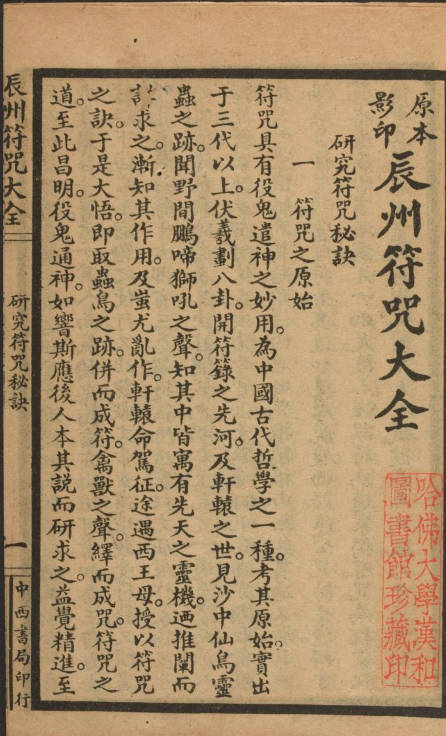 原本
影印
辰州符咒大全
哈佛大學漢和
圖書館珍藏印
研究符咒秘訣
一 符咒之原始
符咒具有役鬼遣神之妙用。為中國古代哲學之一種。考其原始。實出
于三代以上。伏羲劃八卦。開符籙之先河。及軒轅之世。見沙中仙鳥靈
蟲之跡。聞野間鵬啼獅吼之聲。知其中皆寓有先天之靈機。迺推闡而
求之。漸知其作用。及蚩尤亂作。軒轅命駕征途。遇西王母。授以符咒
之訣。于是大悟。即取蟲鳥之跡。併而成符。禽獸之聲。繹而成咒。符咒之
道。至此昌明。役鬼通神。如響斯應。後人本其說而研求之。益覺精進。至
辰州符咒大全
研究符咒秘訣
一
中西書局印行